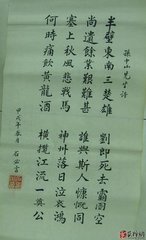 孫中山先生詩
半壁東南三楚雄 劉郎死去霸圖空
尚遺餘業艱難甚 誰與斯人慷慨同
塞上秋風悲戰馬 神州落日泣哀鴻
何時痛飲黃龍酒 橫攬江流一奠公
年春月